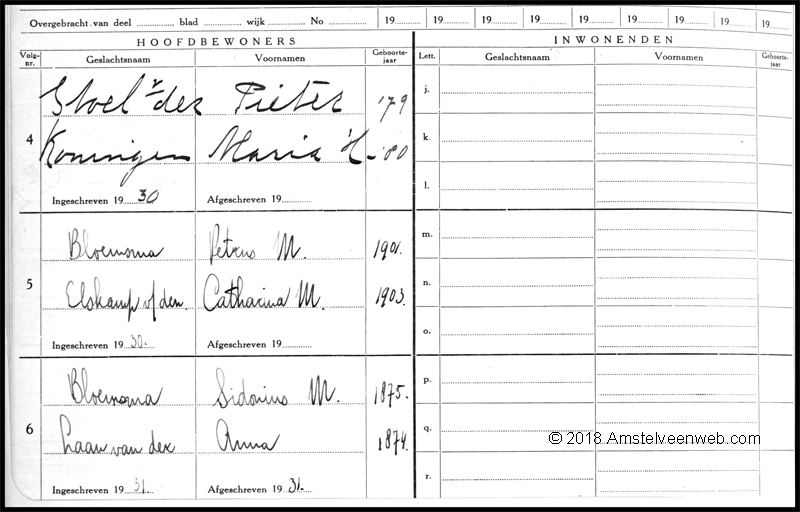 Overgebracht van deel blad wijk No 19 19 19 19 19 19 19 19 19
HOOFDBEWONERS INWONENDEN
Volg-nr. Geslachtsnaam Voornamen Geboorte-jaar Lett. Geslachtsnaam Voornamen Geboorte-jaar
Stoel v. der Pieter '79 j.
4 Koningen Maria H. '80 k.
l.
Ingeschreven 19 30 Afgeschreven 19
Bloemsma Petrus M. 1901. m.
5 Elskamp v/den Catharina M. 1903. n.
o.
Ingeschreven 19 30. Afgeschreven 19
Bloemsma Sidonius M. 1875. p.
6 Laan van der Anna 1874. q.
© 2018 Amstelveenweb.com
r.
Ingeschreven 19 31. Afgeschreven 19 31.